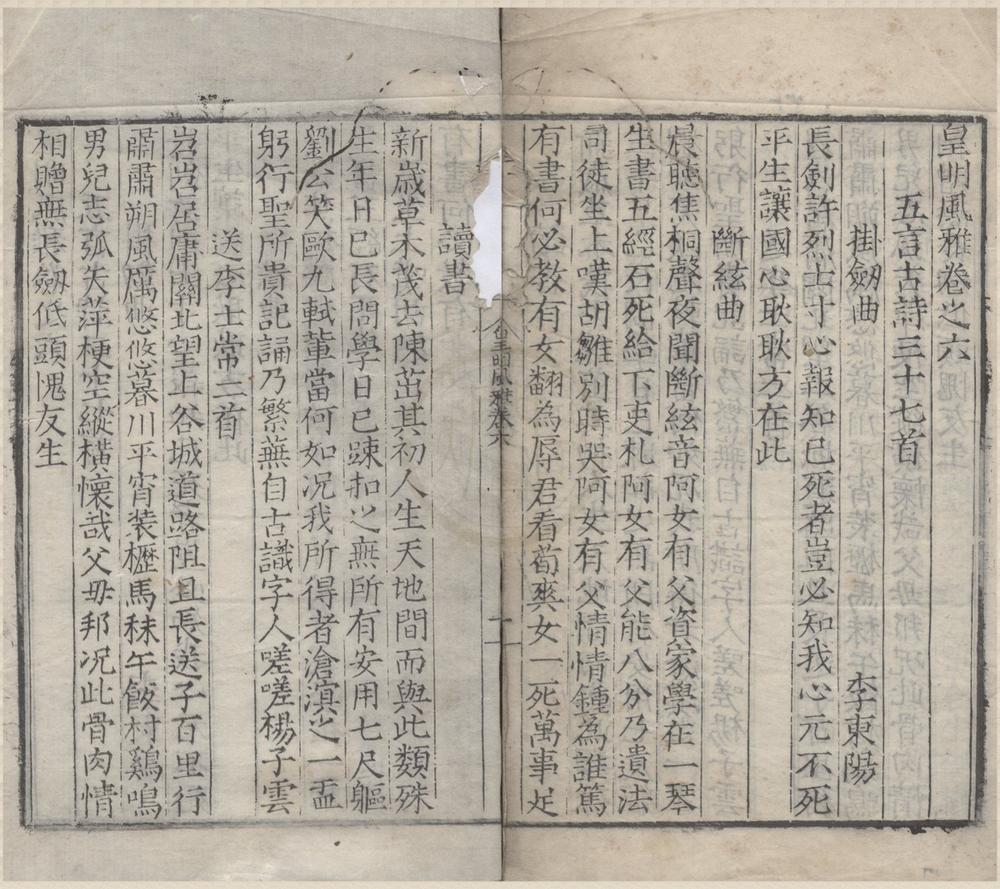 皇明風雅卷之六
五言古詩三十七首
掛劒曲 李東陽
長劍許烈士寸心報知己死者豈必知我心元不死
平生讓國心耿耿方在此
斷絃曲
晨聽焦桐聲夜聞斷絃音阿女有父資家學在一琴
生書五經石死給下吏札阿女有父能八分乃遺法
司徒坐上嘆胡雛別時哭阿女有父情情鍾為誰篤
有書何必教有女翻為辱君看荀爽女一死萬事足
皇明風雅卷六
一
讀書
新歲草木茂去陳茁其初人生天地間而與此類殊
生年日已長問學日已踈扣之無所有安用七尺軀
劉公笑歐九軾輩當何如況我所得者滄溟之一盂
躬行聖所貴記誦乃繁蕪自古識字人嗟嗟楊子雲
送李士常二首
岧岧居庸關北望上谷城道路阻且長送子百里行
肅肅朔風厲悠悠暮川平宵装櫪馬秣午飯村鷄鳴
男兒志弧矢萍梗空縱橫懷哉父毋邦况此骨肉情
相贈無長劒低頭愧友生